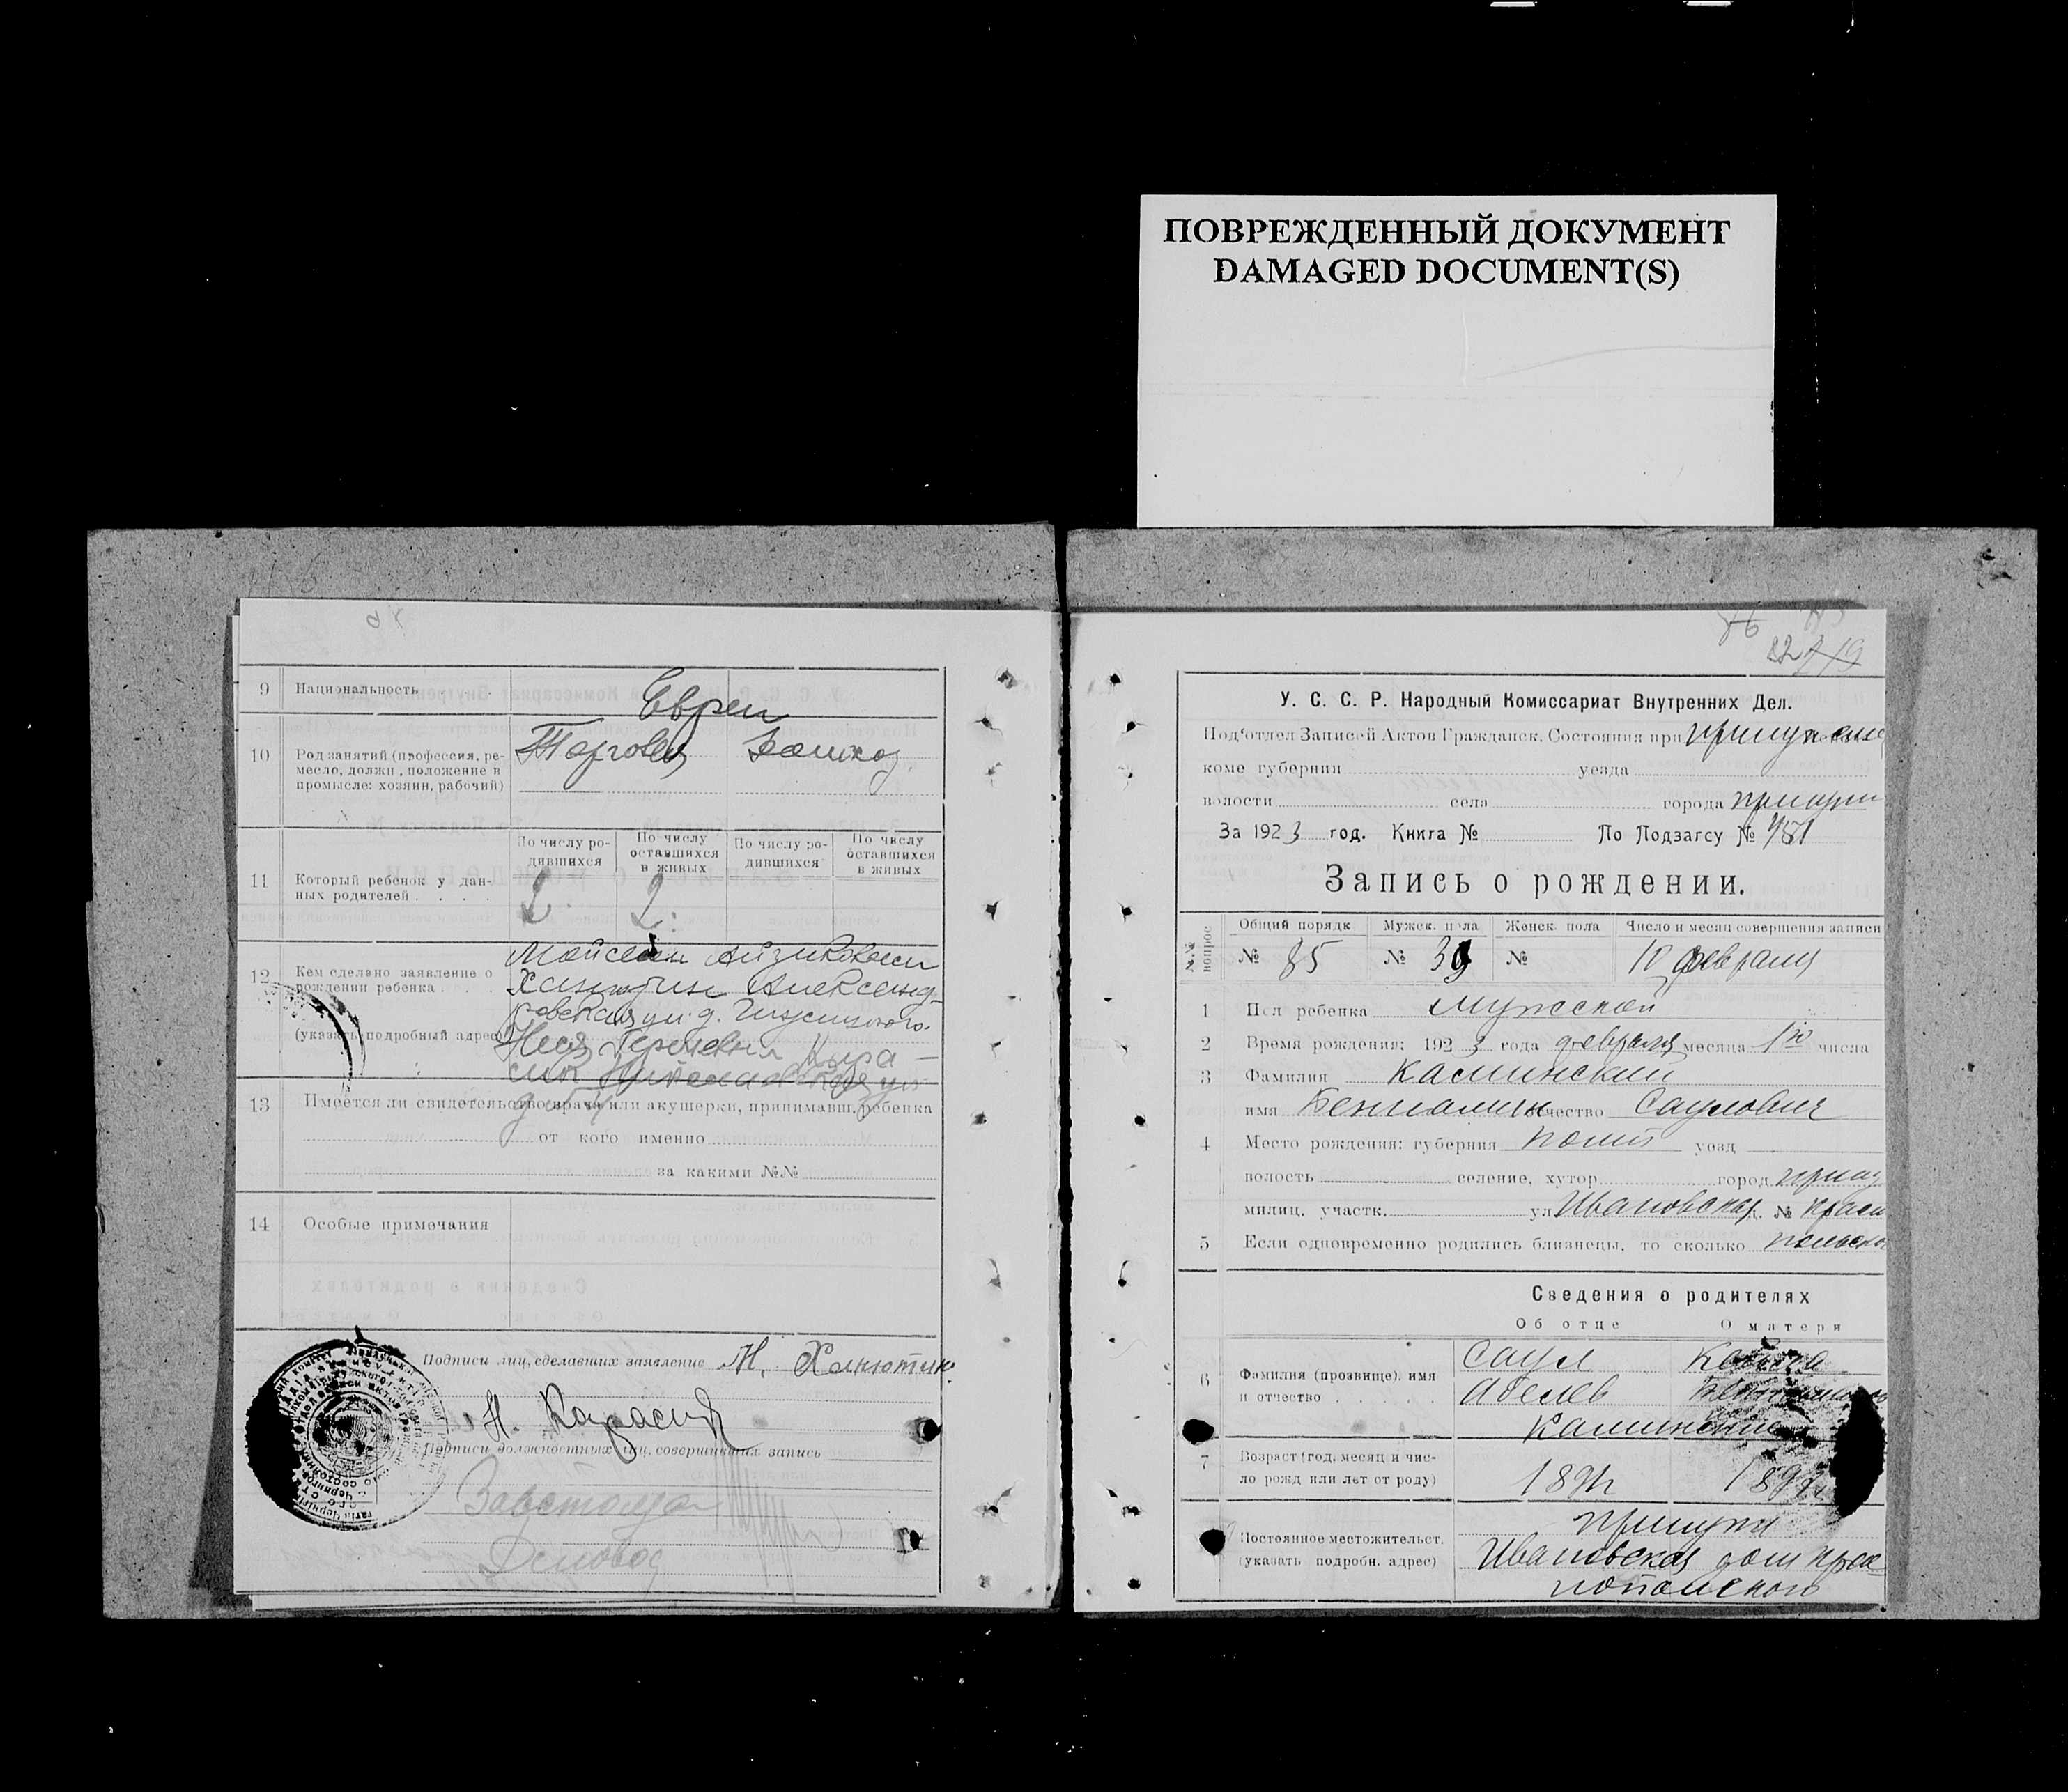 ПОВРЕЖДЕННЫЙ ДОКУМЕНТ
DAMAGED DOCUMENT(S)
9 Национальность
Евреи
10 Род занятий (профессия, ре-
месло, должн., положение в
промысле: хозяин, рабочий)
Торговля Домхоз.
По числу ро-
дившихся
По числу
оставшихся
в живых
По числу ро-
дившихся
По числу
оставшихся
в живых
11 Который ребенок у дан-
ных родителей . . . .
2 2.
12 Кем сделано заявление о
рождении ребенка . . .
(указать подробный адрес)
Мойсеем Айзиковым
Ханютин Александ-
ровская ул. д.
13 Имеется ли свидетельство врача или акушерки, принимавш. ребенка
от кого именно
за какими №№
14 Особые примечания
Подписи лиц, сделавших заявление М. Ханютин
Н. Карасик
Подписи должностных лиц, совершивших запись
Завстолом
Деловод
У. С. С. Р. Народный Комиссариат Внутренних Дел.
Под'отдел Записей Актов Гражданск. Состояния при
коме губернии уезда
волости села города
За 1923 год. Книга № По Подзагсу №
Запись о рождении.
№№ вопрос
Общий порядк Мужск. пола Женск. пола Число и месяц совершения записи
№ 85 № 39 № 10 февраля
1 Пол ребенка мужской
2 Время рождения: 1923 года февраля месяца 1го числа
3 Фамилия Каминский
имя Бениамин отчество Саулович
4 Место рождения: губерния Полт уезд
волость селение, хутор город
милиц. участк. ул Ивановская д. №
5 Если одновременно родились близнецы, то сколько
Сведения о родителях
Об отце О матери
6 Фамилия (прозвище), имя
и отчество . . . . .
Саул
Абелев
Каминские
7 Возраст (год, месяц и чис-
ло рожд или лет от роду)
Постоянное местожительст.
(указать подробн. адрес)
Прилуки
Ивановская дом Кра-